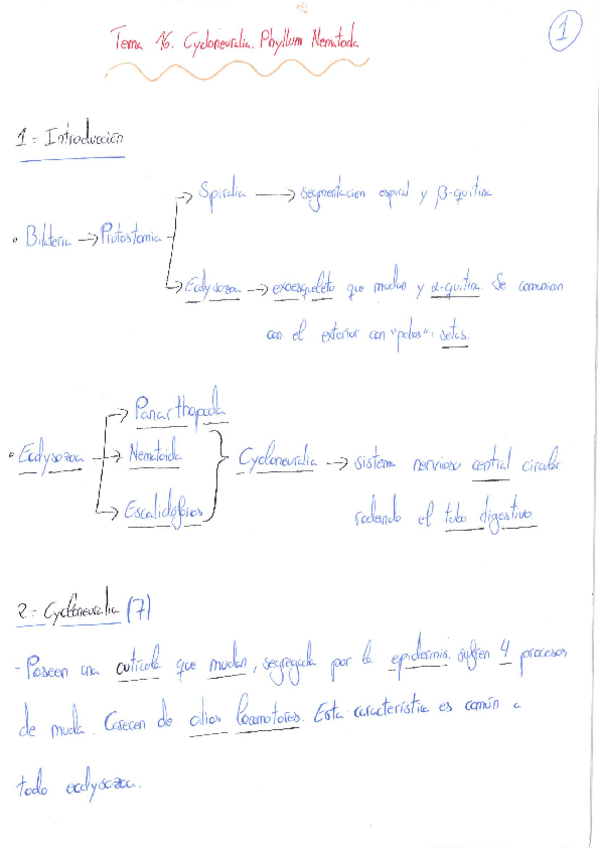 Tema 16. Cycloneuralia. Phyllum Nematoda
1
1- Introducción
Spiralia → segmentacion espiral y β-quitina
• Bilateria → Protostomia
Ecdysozoa → exoesqueleto que mudan y α-quitina. Se comunican
con el exterior con "pelos": setas.
Panarthopoda
• Ecdysozoa → Nematoida } Cycloneuralia → sistema nervioso central circular
Escalidóforos rodeando el tubo digestivo
2- Cycloneuralia (7)
- Poseen una cutícula que mudan, segregada por la epidermis. Sufren 4 procesos
de muda. Carecen de cilios locomotores. Esta característica es común a
todo ecdysozoa.